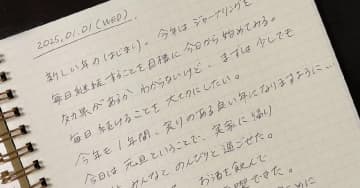 2025.01.01 (WED)
新しい年のはじまり。今年はジャーナリングを
毎日継続することを目標に今日から始めてみる。
効果があるかわからないけど、まずは少しでも
毎日続けることを大切にしたい。
今年も1年間、実りのある良い年になりますように…
今日は元旦ということで、実家に帰り
みんなとのんびりと過ごせた。
お酒を飲んで
できた。